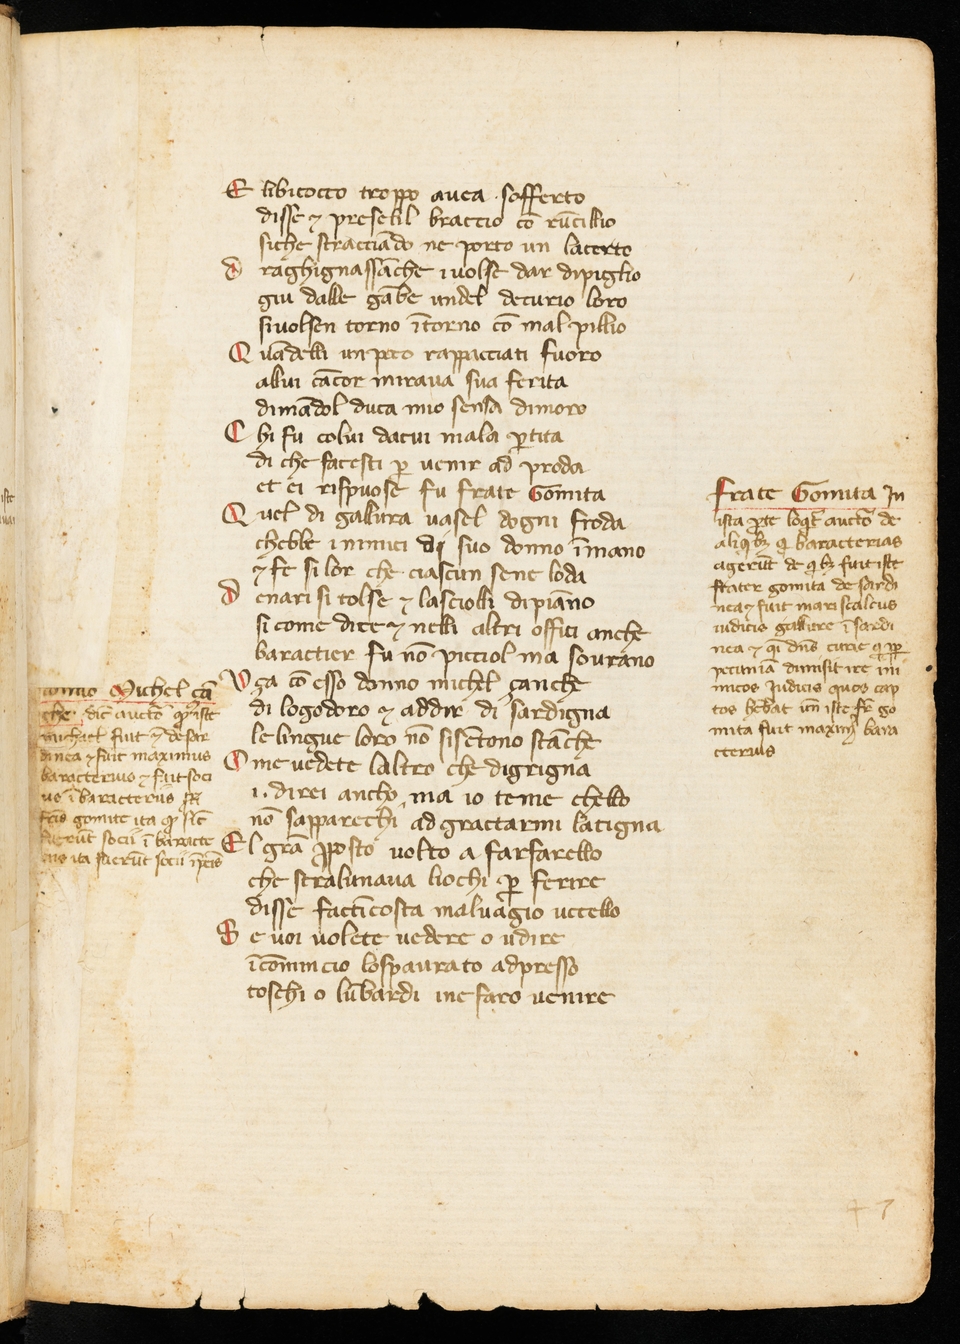 E libicocco troppo auea sofferto
disse ⁊ preseli̇l braccio cō rūcillio
siche stracciādo ne porto un lacerto
d raghignassāche i uolse dar dipiglio
giu dalle gābe undel decurio loro
siuolsen torno ītorno cō mal pillio
Q uādelli un poco rappacciati fuoro
allui cācor miraua sua ferita
dimādol duca mio sensa dimoro
C hi fu colui dacui mala ꝑtita
di che facesti ꝑ uenir ad proda
et ei rispuose fu frate Gomita
Q uel di gallura uasel dogni froda
chebbe i nimici di suo donno ī mano
⁊ fe si lor che ciascun sene loda
D enari si tolse ⁊ lasciolli dipiāno
si come dice ⁊ nelli altri offici anche
baractier fu nō picciol ma sourano
V ga cō esso donno michel çanche
di logodoro ⁊ addir di sardigna
le lingue loro nō sisētono stāche
O me uedete laltro che digrigna
i. direi ancho ma io teme chello
nō sapparechi ad gractarmi latigna
E l grā ꝓposto uolto a farfarello
che stralunaua liochi ꝑ ferire
disse facticosta maluagio uccello
S e uoi uolete uedere o udire
īcōmincio lospaurato adpresso
toschi o lūbardi ine faro uenire
frate Gomita In
ista ꝑte loqt̄ auctō de
baracterias
agerūt de fuit iste
frater gomita de sardi
nea ⁊ fuit mariscalcus
iudicis gallure ī sardi
nea ⁊ dn̄s curie
pecuniā dimisit ire ini
micos Judicis quos cap
tos hēbat iste fr̄ go
mita fuit maximꝰ bara
cterius
Michel cā
che dic̄ auctō iste
michael fuit de sar
dinea ⁊ fuit maximus
baracterius ⁊ fuit soci
us ī baracteriis
fr̄is gomite ita ꝙ sic̄
fuerūt socii ī baracte
riis ita fuerūt socii